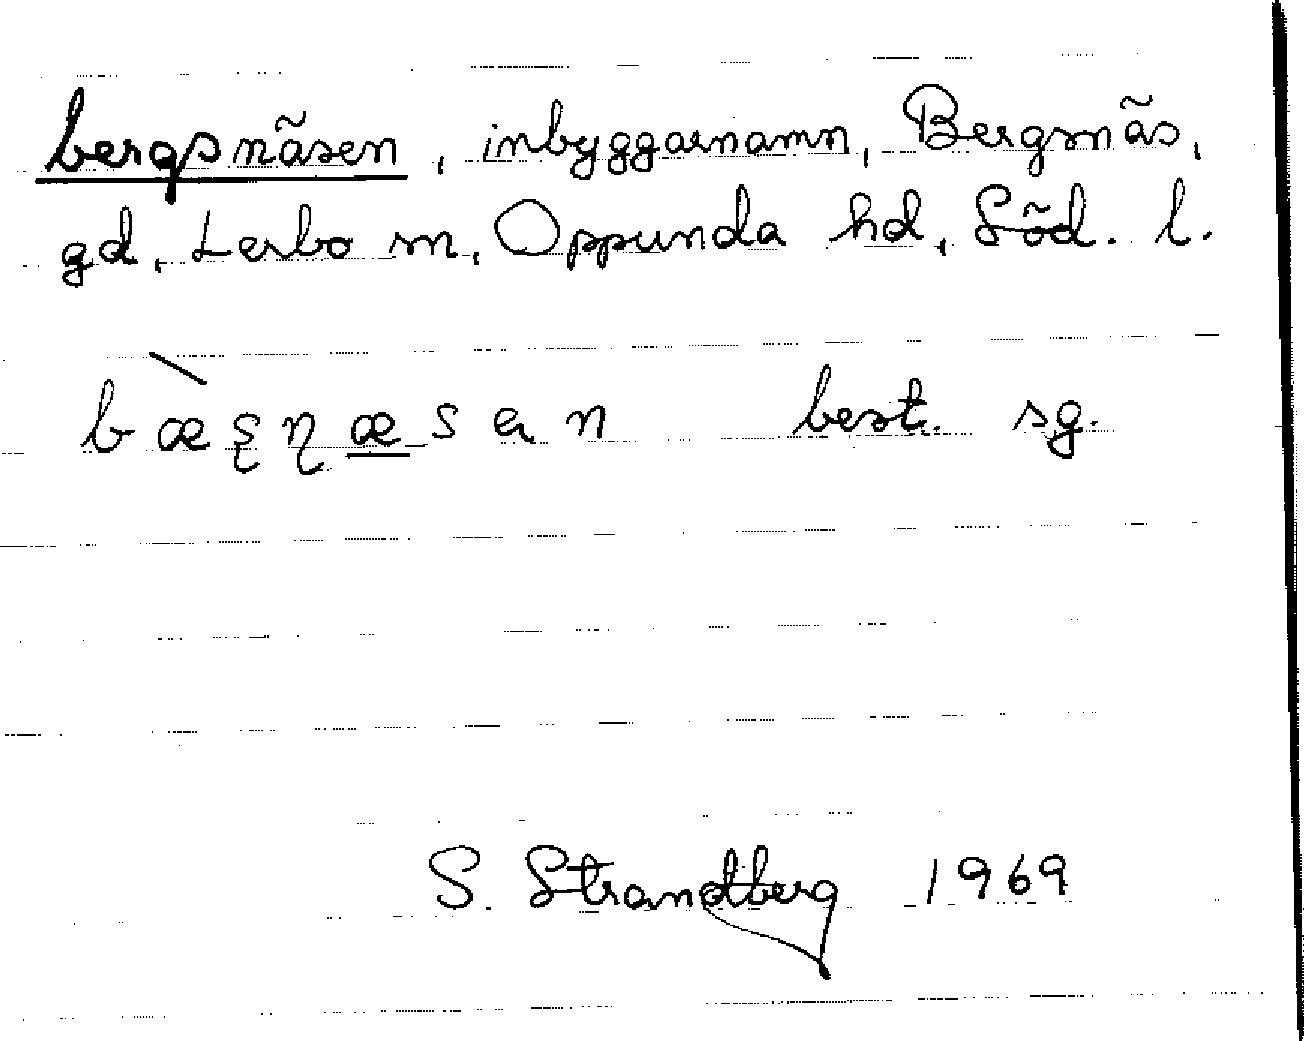 bergsnäsen, inbyggarnamn, Bergsnäs,
gd, Lerbo sn, Oppunda hd, Söd. l.
bæ̀ʂɳæ̲sən best. sg.
S. Strandberg 1969